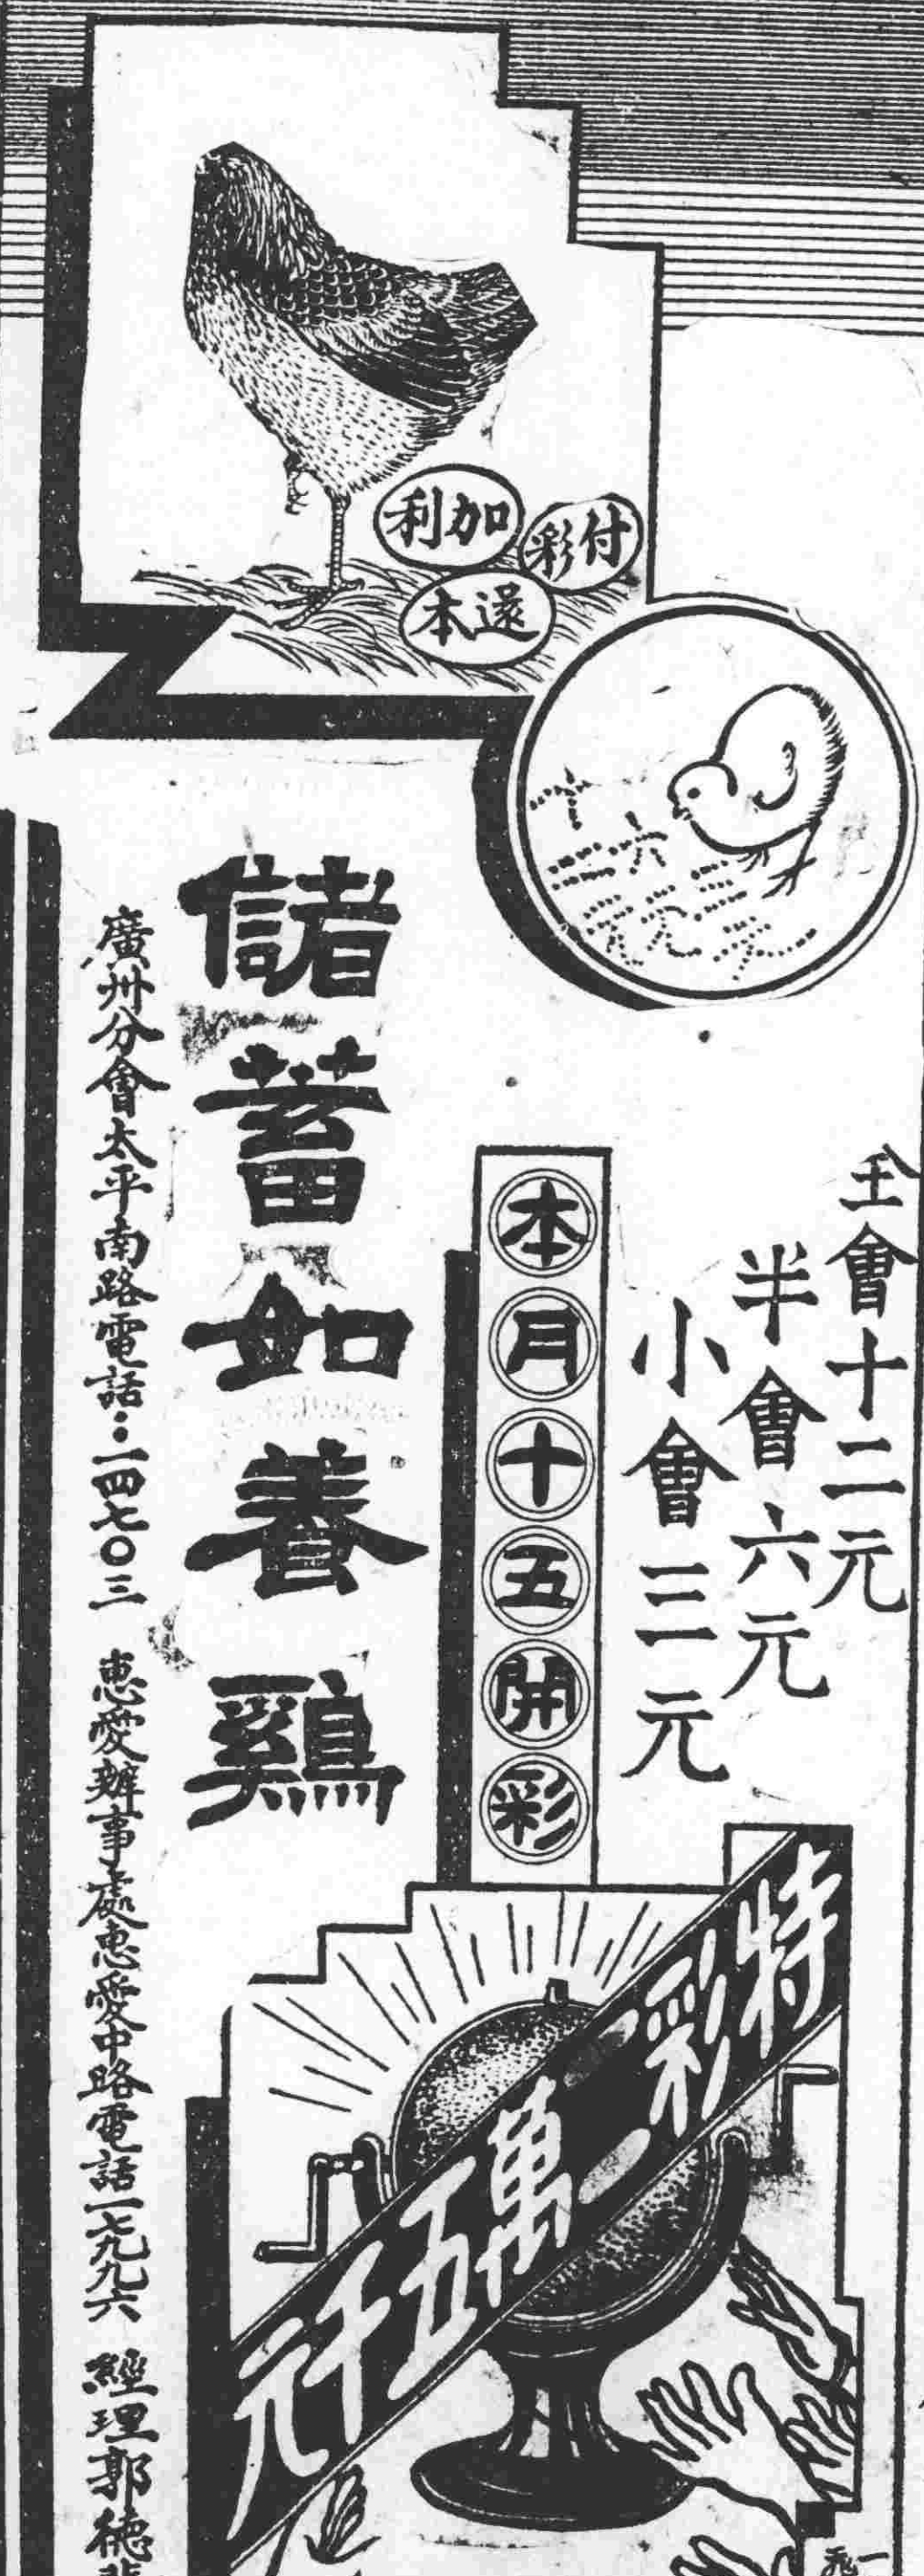 加利
付彩
還本
十二元
六元
三元
全會十二元
半會六元
小會三元
本月十五開彩
儲蓄如養鷄
廣州分會太平南路電話·一四七〇三 惠愛辦事處惠愛中路電話一七九九六 經理郭德
特彩二萬五千元